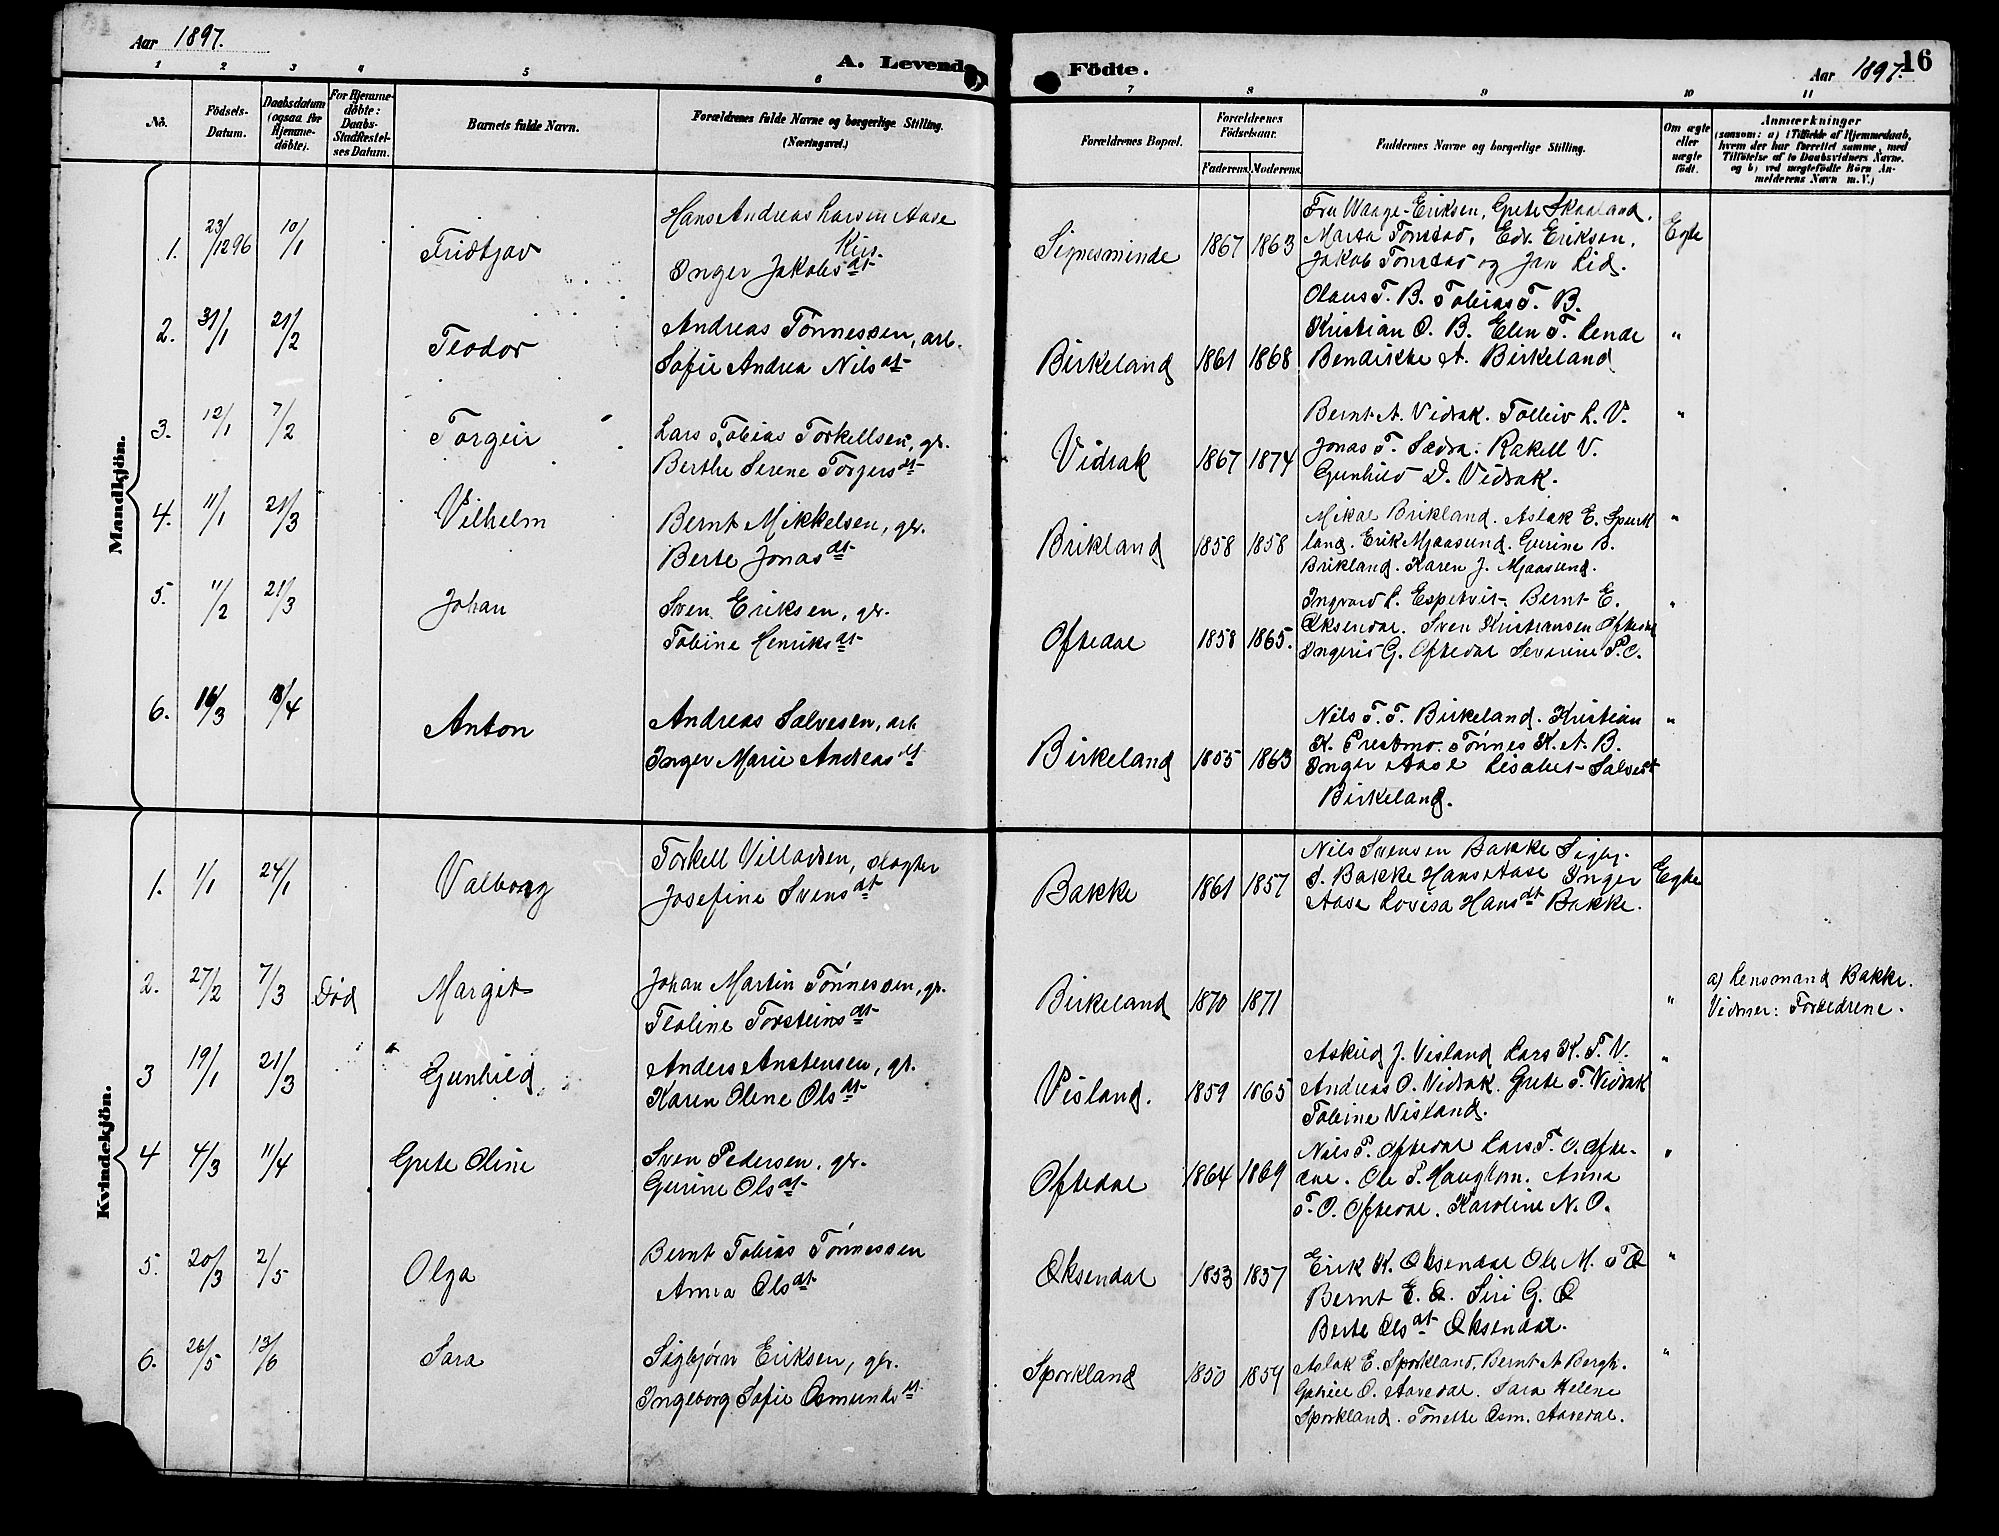 Aar 1897.
A. Levende Födte.
Aar 1897.
16
1 2 3 4 5 6 7 8 9 10 11
No.
Födsels-
Datum.
Daabsdatum
(ogsaa for
Hjemme-
døbte).
For Hjemme-
døbte:
Daabs-
Stadfestel-
ses Datum.
Barnets fulde Navn.
Forældrenes fulde Navne og borgerlige Stilling.
(Næringsvei.)
Forældrenes Bopæl.
Forældrenes
Födselsaar.
Faderens. Moderens.
Faddernes Navne og borgerlige Stilling.
Om ægte
eller
uægte
født.
Anmærkninger
(saasom: a) i Tilfælde af Hjemmedaab,
hvem der har forrettet samme, med
Tilføielse af to Daabsvidners Navne.
og b) ved uægtefødte Börn An-
melderens Navn m.V.)
Mandkjön.
1. 23/12 96 10/1 Fridtjov
Hans Andreas Larsen Aase
Inger Jakobsdt
1867 1863
Fru Waage-Eriksen, Grete Skaaland.
Marta Tonstad, Edv. Eriksen.
Jakob Tonstad og Jan Lid.
Egte
2. 31/1 21/2 Teodor
Andreas Tønnessen, arb.
Sofie Andrea Nilsdt
Birkeland 1861 1868
Olaus T. B. Tobias T. B.
Kristian O. B. Elen T. Lende
Bendikke A. Birkeland
"
3. 12/1 7/2 Torgeir
Lars Tobias Torkellsen, gr.
Berthe Serene Torgersdt
Vidrak 1867 1874
Bernt A. Vidrak. Tolleiv L. V.
Jonas T. Sædra: Rakell V.
Gunhild D. Vidrak.
"
4. 11/1 21/3 Vilhelm
Bernt Mikkelsen, gr.
Berte Jonasdt
Brikland 1858 1858
Mikal Brikland. Aslak E. Spurk
land. Erik Mjaasund. Gurine B.
Brikland. Karen J. Mjaasund.
"
5. 11/2 21/3 Johan
Sven Eriksen, gr.
Tobine Henriksdt
Oftedal 1858 1865.
Ingvald L. Espetvit. Bernt E.
Øksendal. Sven Kristiansen Oftedal
Ingerid G. Oftedal Severine P. O.
"
6. 16/3 18/4 Anton
Andreas Salvesen, arb.
Inger Marie Andreasdt
Birkeland 1855 1863
Nils T. T. Birkeland. Kristian
K. Prestmo. Tönnes K. A. B.
Inger Aase Lisabet Salvesdt
Birkeland.
"
Kvindekjön.
1. 1/1 24/1 Valborg
Torkell Villadsen, slagter
Josefine Svensdt
Bakke 1861 1857
Nils Svensen Bakke Sigbj.
S. Bakke Hans Aase Inger
Aase Lovisa Hansdt Bakke.
Egte
2. 27/2 7/3 Död Margit
Johan Martin Tönnessen, gr.
Teoline Torsteinsdt
Birkeland 1870 1871
"
a) Lensmand Bakke.
Vidner: Foreldrene.
3 19/1 21/3 Gunhild
Anders Anstensen, gr.
Karen Olene Olsdt
Visland. 1859 1865
Askild J. Visland Lars K. T. V.
Andreas O. Vidrak. Grete T. Vidrak
Tobine Visland.
"
4 4/3 11/4 Grete Oline
Sven Pedersen, gr.
Gurine Olsdt
Oftedal 1864 1869
Nils P. Oftedal Lars T. O. Ofte-
dal. Ole P. Haughom. Anna
T. O. Oftedal. Karoline N. O.
"
5. 20/3 2/5 Olga
Bernt Tobias Tönnessen
Anna Olsdt
Øksendal 1853 1857
Erik K. Øksendal Ole M. T Ø
Bernt E. Ø. Siri G. Ø
Berte Olsdt Øksendal.
"
6. 26/5 13/6 Sara
Sigbjørn Eriksen, gr.
Ingeborg Sofie Osmundsdt
Sporkland 1850 1854
Aslak E. Sporkland. Bernt A Bergh.
Gabriel O. Aavedal. Sara Helene
Sporkland. Tonette Osm. Aavedal.
"